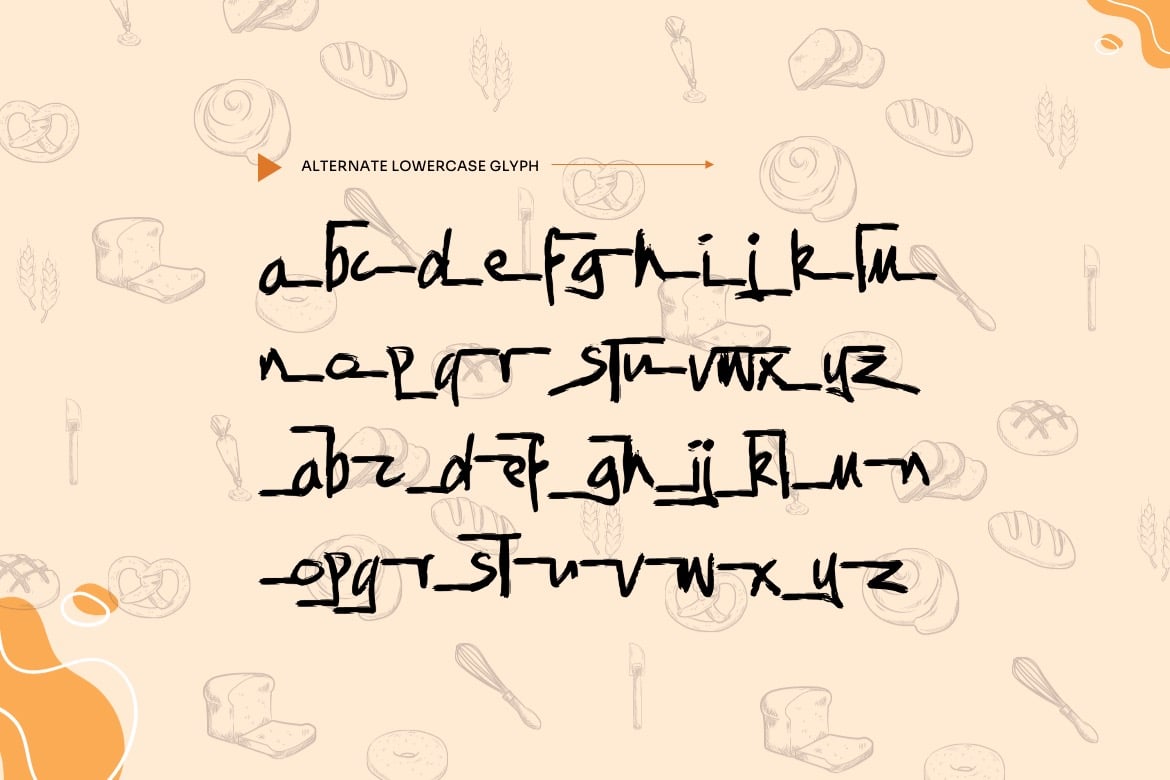 ALTERNATE LOWERCASE GLYPH
a b c d e f g h i j k l m
n o p q r s t u v w x y z
a b c d e f g h i j k l m n
o p q r s t u v w x y z